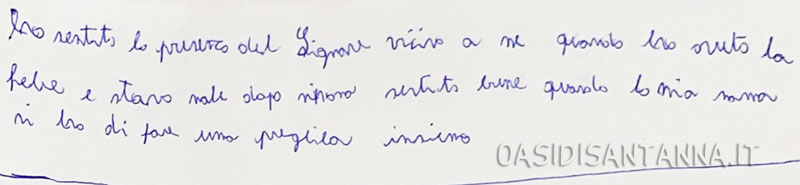 Ho sentito la presenza del Signore vicino a me quando ho avuto la
febbre e stavo male dopo sentito bene quando la mia mamma
di fare una preghiera insieme
OASIDISANTANNA.IT